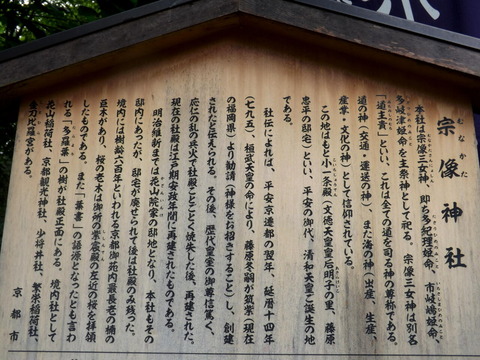 宗像神社
むなかた
本社は宗像三女神、即ち多紀理姫命、市岐嶋姫命、
多岐津姫命を主祭神として祀る。宗像三女神は別名
「道主貴」といい、これは全ての道を司る神の尊称である。
道の神(交通、運送の神)、また海の神(出産、生産、
産業・文化の神)として信仰されている。
この地はもと小一条殿(文徳天皇皇后明子の里、藤原
忠平の邸宅)といい、平安の御代、清和天皇ご誕生の地
である。
社伝によれば、平安京遷都の翌年、延暦十四年
(七九五)、桓武天皇の命により、藤原冬嗣が筑紫(現在
の福岡県)より勧請(神様をお招きすること)し、創建
されたと伝えられる。その後、歴代皇室の御尊信篤く、
応仁の乱の兵火で社殿ことごとく焼失した後、再建された。
現在の社殿は江戸期安政年間に再建されたものである。
明治維新までは花山院家の邸地となり、本社もその
邸内にあったが、邸宅が廃せられて後は社殿のみ残った。
境内には樹齢六百年といわれる京都御苑内最長老の楠の
巨木があり、桜の老木は御所の紫宸殿の左近の桜を拝領
したものである。また「葉書」の語源となったとも言わ
れる「多羅葉」の樹が社殿正面にある。境内社として
花山稲荷社、京都観光神社、少将井社、繁栄稲荷社、
金刀比羅宮がある。
京都市